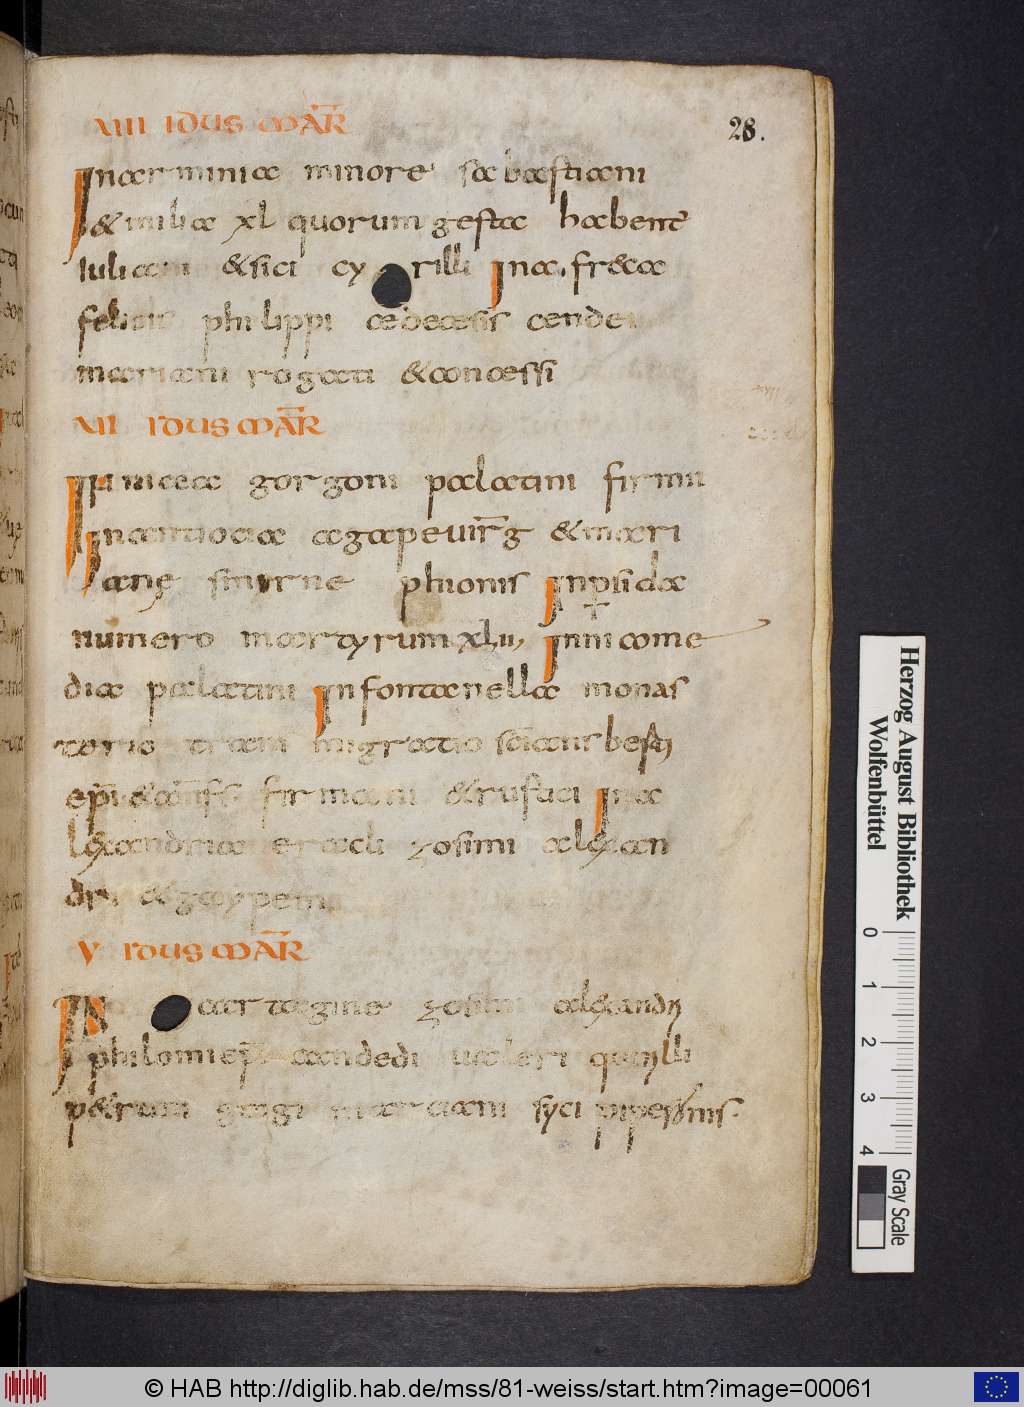 VIIII IDUS MAR̄
28.
In arminia minore sabastiani
& milia xl quorum gesta habent̄
iuliani & sici cyrilli In africa
felicis philippi
mariani rogati &
VII IDUS MAR̄
In nicea gorgoni palatini firmi
In antiocia agape uirg̅ & mari
anę smirne phionis In pisida
numero martyrum xlii, In nicome
dia palatini In fontanella monas
torio trani migratio sc̄i ansberti
ep̄i & firmani & rufaci In a
lexandria eracli zosimi alexan
dri &
V IDUS MAR̄
In cartagine zosimi alexandri
philomi ep̄i candedi ualeri quirilli
petrani gagi marciani syci piperionis.
Herzog August Bibliothek
Wolfenbüttel
0 1 2 3 4
Gray Scale
© HAB http://diglib.hab.de/mss/81-weiss/start.htm?image=00061